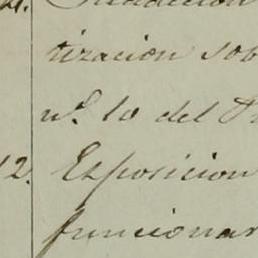 tizacion sob
nº. 10 del Pr
12. Esposicion
funcionar